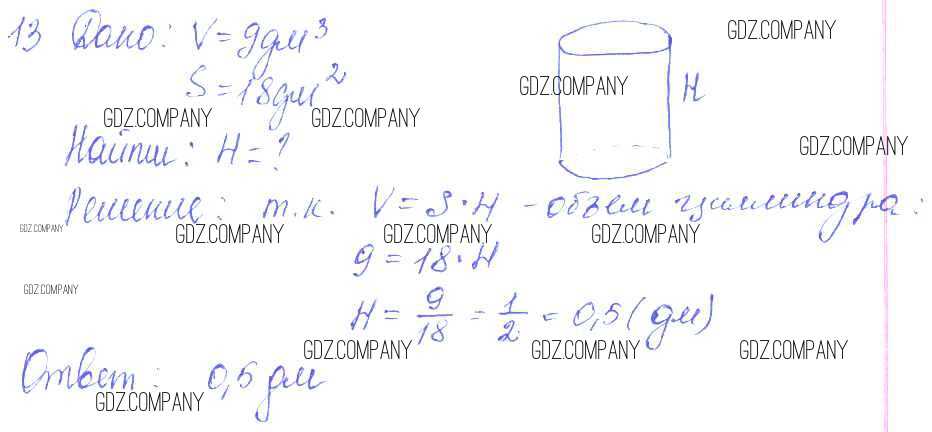 13 Дано: V = 9 дм³
GDZ.COMPANY
S = 18 дм²
GDZ.COMPANY
H
GDZ.COMPANY GDZ.COMPANY
Найти: H = ?
GDZ.COMPANY
Решение: т.к. V = S · H – объем цилиндра:
GDZ.COMPANY GDZ.COMPANY GDZ.COMPANY GDZ.COMPANY
9 = 18 · H
GDZ.COMPANY
H = 9/18 = 1/2 = 0,5 (дм)
GDZ.COMPANY GDZ.COMPANY GDZ.COMPANY
Ответ: 0,5 дм
GDZ.COMPANY